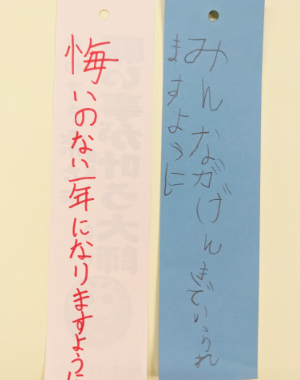 悔いのない一年になりますように
みんながげんきでいられ
ますように